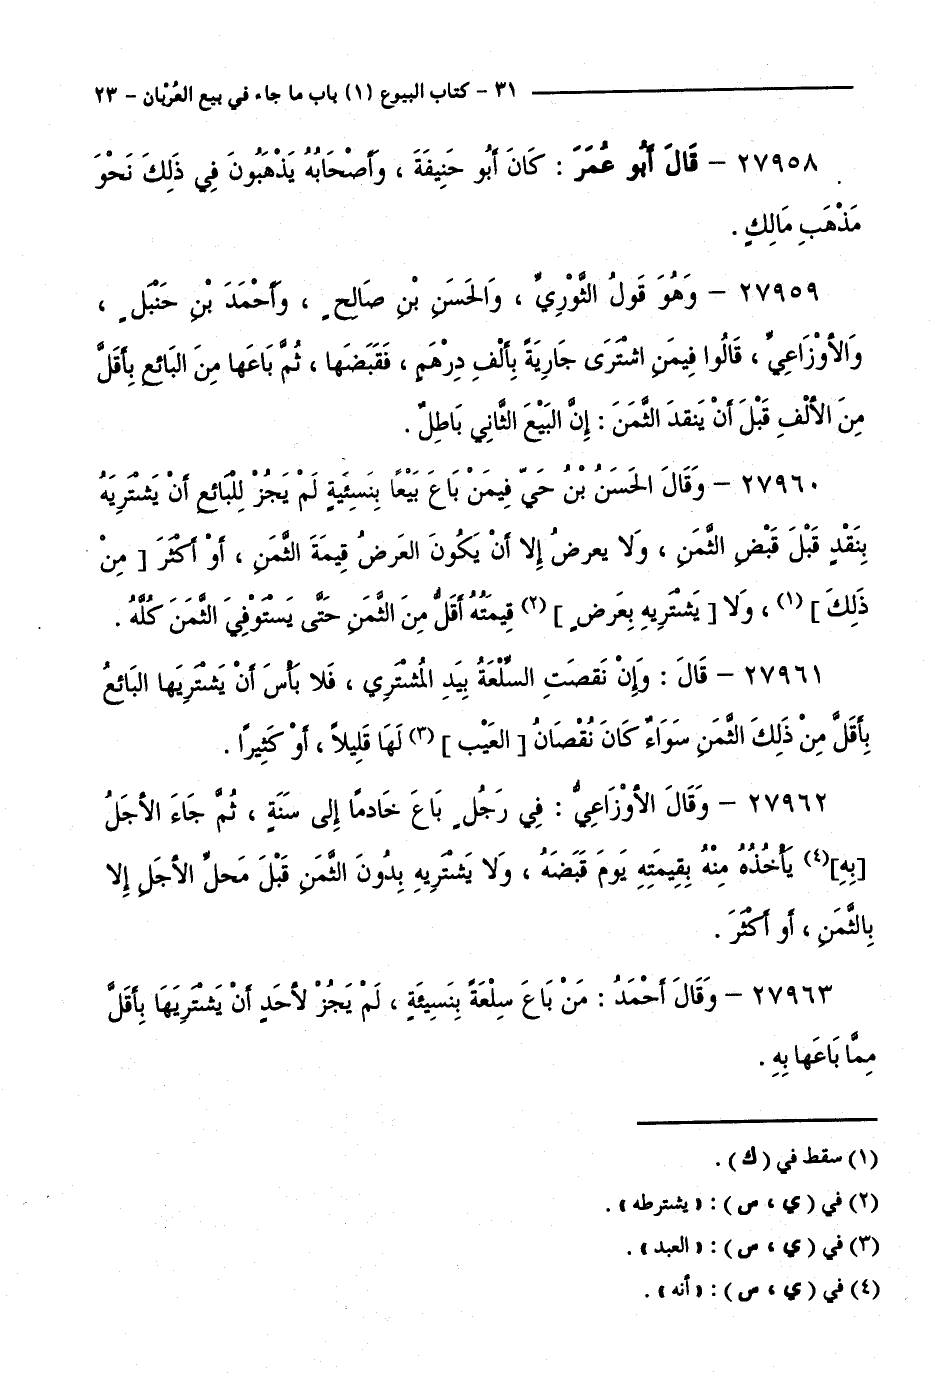 ٣١ - كتاب البيوع (١) باب ما جاء في بيع العُرْبان - ٢٣
٢٧٩٥٨ - قَالَ أَبُو عُمَرَ : كَانَ أَبُو حَنِيفَةَ ، وَأَصْحَابُهُ يَذْهَبُونَ فِي ذَلِكَ نَحْوَ
مَذْهَبِ مَالِكٍ .
٢٧٩٥٩ - وَهُوَ قَولُ الثَّوْرِيِّ ، وَالحَسَنِ بْنِ صَالِحٍ ، وَأَحْمَدَ بْنِ حَنْبَلٍ ،
وَالأوْزَاعِيِّ ، قَالُوا فِيمَنِ اشْتَرَى جَارِيَةً بِأَلْفِ دِرْهَمٍ ، فَقَبَضَها ، ثُمَّ بَاعَها مِنَ البَائعِ بِأَقَلَّ
مِنَ الأَلْفِ قَبْلَ أَنْ يَنقدَ الثَّمَنَ : إِنَّ البَيْعَ الثَّانِي بَاطِلٌ .
٢٧٩٦٠ - وَقَالَ الحَسَنُ بْنُ حَيّ فِيمَنْ بَاعَ بَيْعًا بِنَسِئَيةٍ لَمْ يَجُزْ لِلْبَائعِ أَنْ يَشْتَرِيَهُ
بِنَقْدٍ قَبْلَ قَبْضِ الثَّمَنِ ، وَلا يعرضُ إِلا أَنْ يَكُونَ العَرضُ قِيمَةَ الثَّمَنِ ، أَوْ أَكْثَرَ [ مِنْ
ذَلِكَ ] (١) ، وَلا [ يَشْتَرِيهِ بِعَرضٍ ] (٢) قِيمَتُهُ أَقَلُّ مِنَ الثَّمَنِ حَتَّى يَسْتَوْفِيَ الثَّمَنَ كُلَّهُ .
٢٧٩٦١ - قَالَ : وَإِنْ نَقصَتِ السِّلْعَةُ بِيَدِ المُشْتَرِي ، فَلا بَأْسَ أَنْ يَشْتَرِيَها البَائعُ
بِأَقَلَّ مِنْ ذَلِكَ الثَّمَنِ سَوَاءٌ كَانَ نُقْصَانُ [ العَيْبِ ] (٣) لَهَا قَلِيلاً ، أَوْ كَثِيرًا .
٢٧٩٦٢ - وَقَالَ الأوْزَاعِيُّ : فِي رَجُلٍ بَاعَ خَادمًا إِلى سَنَةٍ ، ثُمَّ جَاءَ الأجَلُ
[بِهِ](٤) يَأْخُذُهُ مِنْهُ بِقِيمَتِهِ يَومَ قَبَضَهُ ، وَلا يَشْتَرِيهِ بِدُونَ الثَّمَنِ قَبْلَ مَحلِّ الأجَلِ إِلا
بِالثَّمَنِ ، أَو أَكْثَرَ .
٢٧٩٦٣ - وَقَالَ أَحْمَدُ : مَنْ بَاعَ سِلْعَةً بِنَسِيئَةٍ ، لَمْ يَجُزْ لأَحَدٍ أَنْ يَشْتَرِيَهَا بِأَقَلَّ
مِمَّا بَاعَها بِهِ .
(١) سقط في ( ك ) .
(٢) في ( ي ، ص ) : « يشترطه » .
(٣) في ( ي ، ص ) : « العبد » .
(٤) في ( ي ، ص ) : « أنه » .